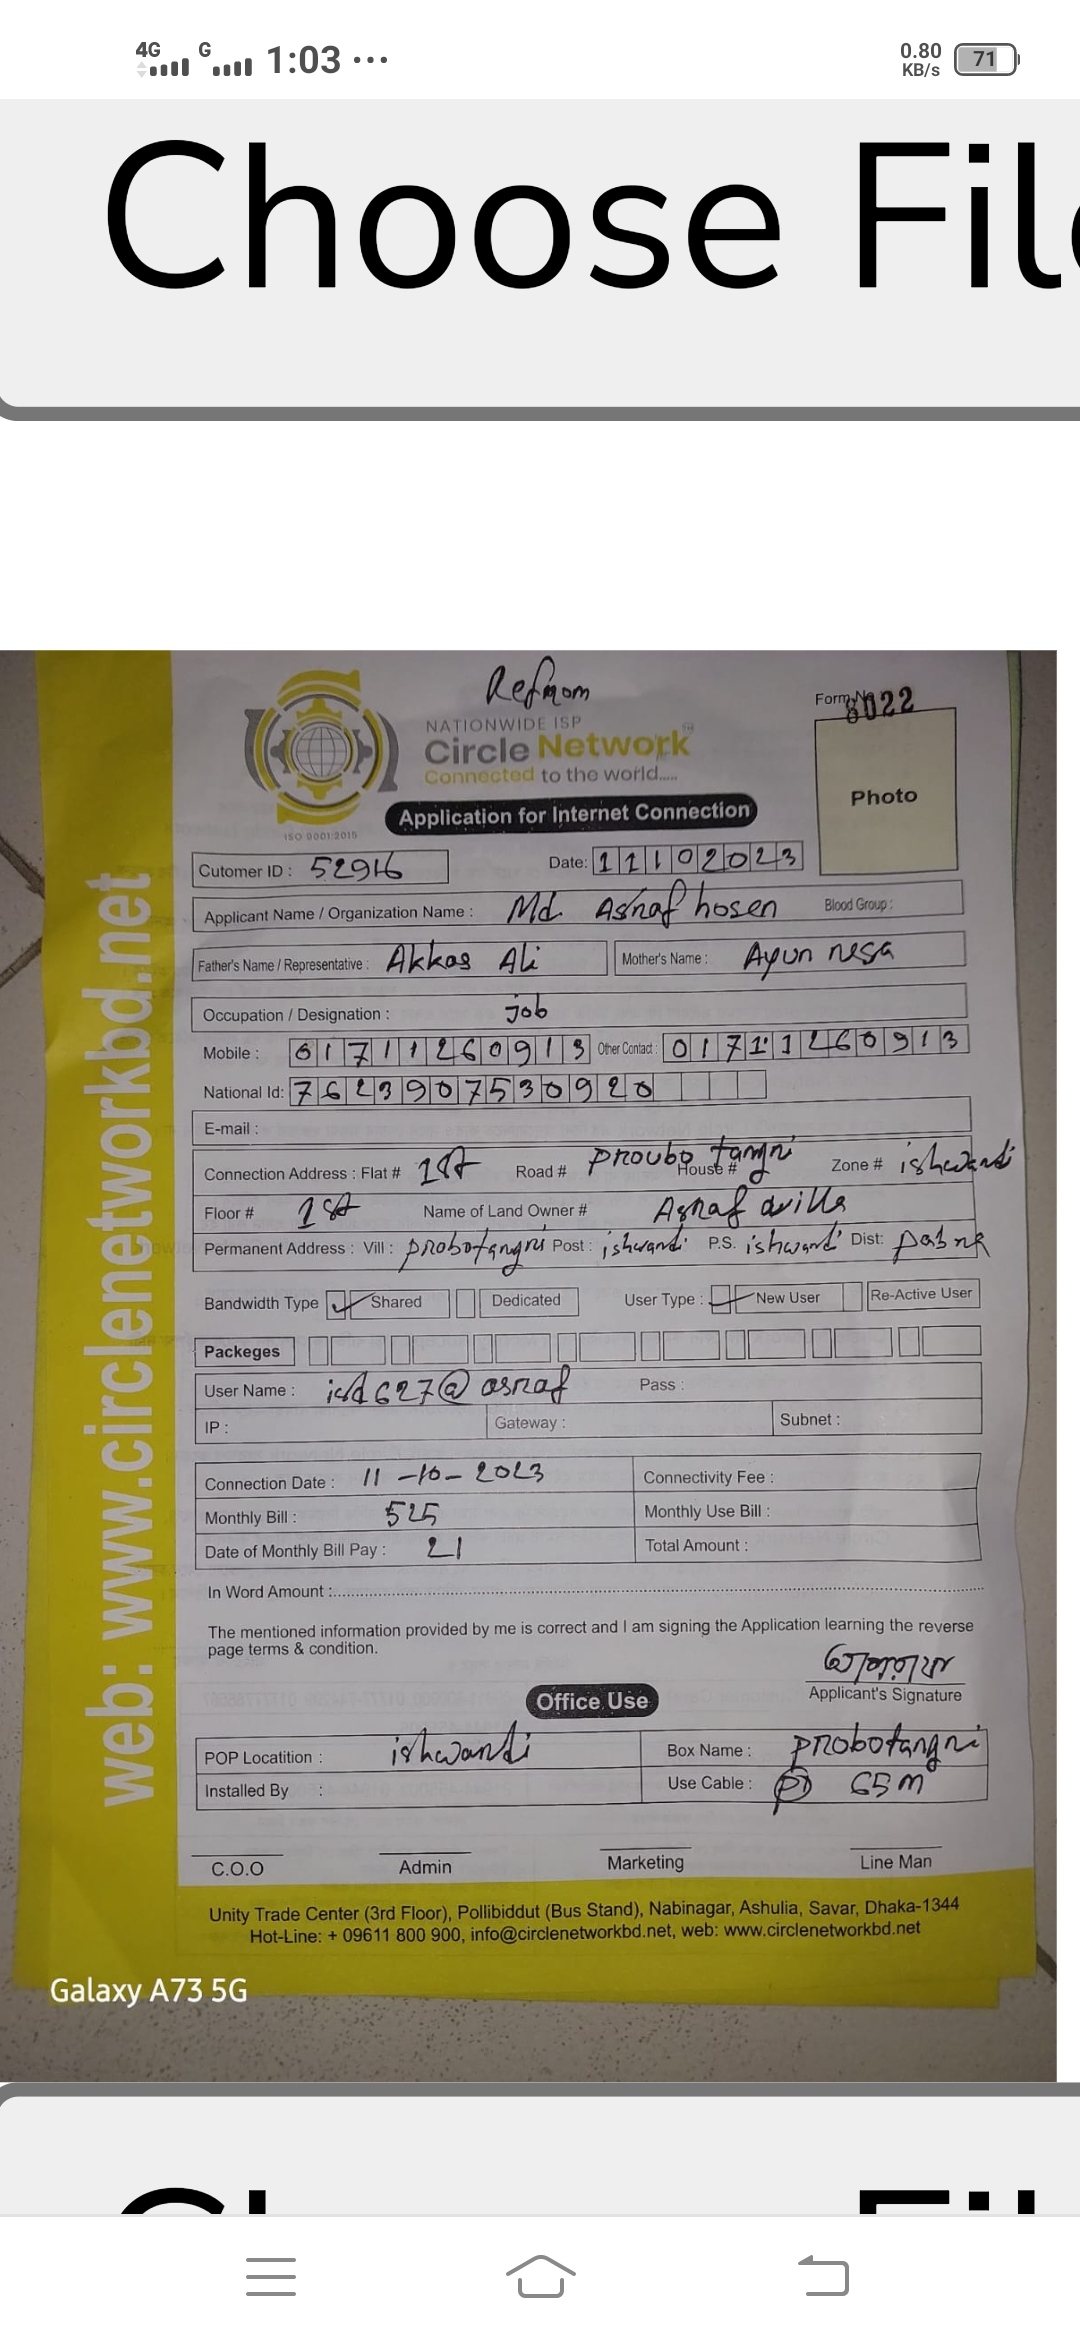 4G G 1:03 ...
0.80 KB/s 71
Choose File
web: www.circlenetworkbd.net
NATIONWIDE ISP
Form No 8022
Circle Network
Connected to the world.....
Photo
Application for Internet Connection
ISO 9001:2015
Cutomer ID : 52916 Date: 11102023
Applicant Name / Organization Name : Md. Asraf hosen Blood Group :
Father's Name / Representative : Akkas Ali Mother's Name : Ayun nesa
Occupation / Designation : job
Mobile : 01711260913 Other Contact : 01711260913
National Id: 7623907530920
E-mail :
Connection Address : Flat # 1st Road # proubo tangri House # Zone # ishwardi
Floor # 1st Name of Land Owner # Asraf
Permanent Address : Vill : probotangri Post : ishwardi P.S. ishwardi Dist: pabna
Bandwidth Type Shared Dedicated User Type : New User Re-Active User
Packeges
User Name : isd627@asraf Pass :
IP : Gateway : Subnet :
Connection Date : 11-10-2023 Connectivity Fee :
Monthly Bill : 525 Monthly Use Bill :
Date of Monthly Bill Pay : 21 Total Amount :
In Word Amount :
The mentioned information provided by me is correct and I am signing the Application learning the reverse
page terms & condition.
Applicant's Signature
Office Use
POP Locatition : ishwardi Box Name : probotangri
Installed By : Use Cable : 65m
C.O.O Admin Marketing Line Man
Unity Trade Center (3rd Floor), Pollibiddut (Bus Stand), Nabinagar, Ashulia, Savar, Dhaka-1344
Hot-Line: + 09611 800 900, info@circlenetworkbd.net, web: www.circlenetworkbd.net
Galaxy A73 5G